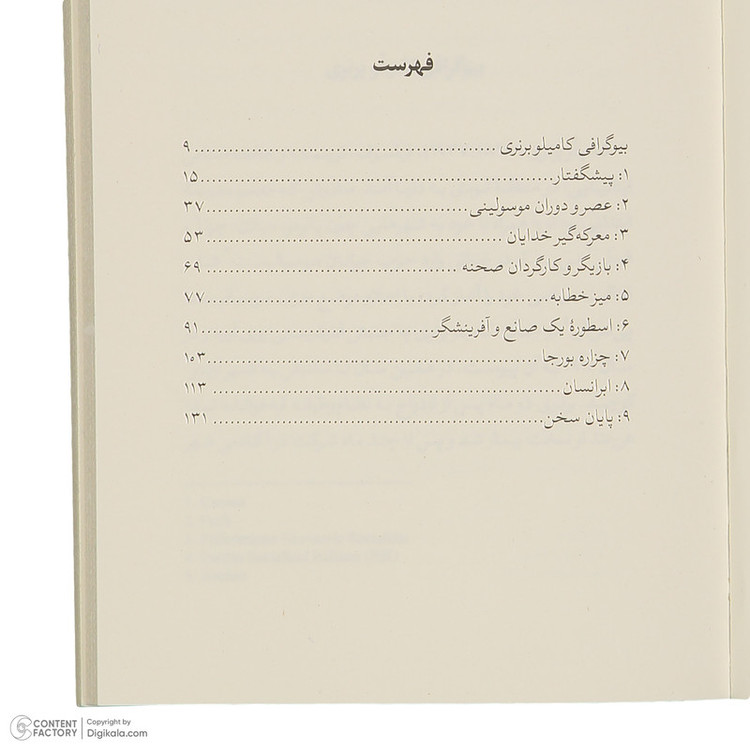 فهرست
بیوگرافی کامیلو برنری ..... ۹
۱: پیشگفتار..... ۱۵
۲: عصر و دوران موسولینی..... ۳۷
۳: معرکه‌گیر خدایان ..... ۵۳
۴: بازیگر و کارگردان صحنه ..... ۶۹
۵: میز خطابه..... ۷۷
۶: اسطورهٔ یک صانع و آفرینشگر..... ۹۱
۷: چزاره بورجا ..... ۱۰۳
۸: ابرانسان..... ۱۱۳
۹: پایان سخن..... ۱۳۱
CONTENT FACTORY
Copyright by
Digikala.com